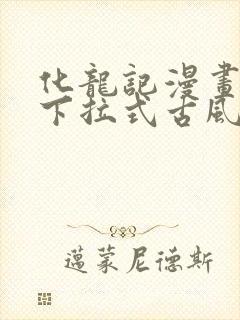 化龍記漫畫
下拉式古風
邁蒙尼德斯